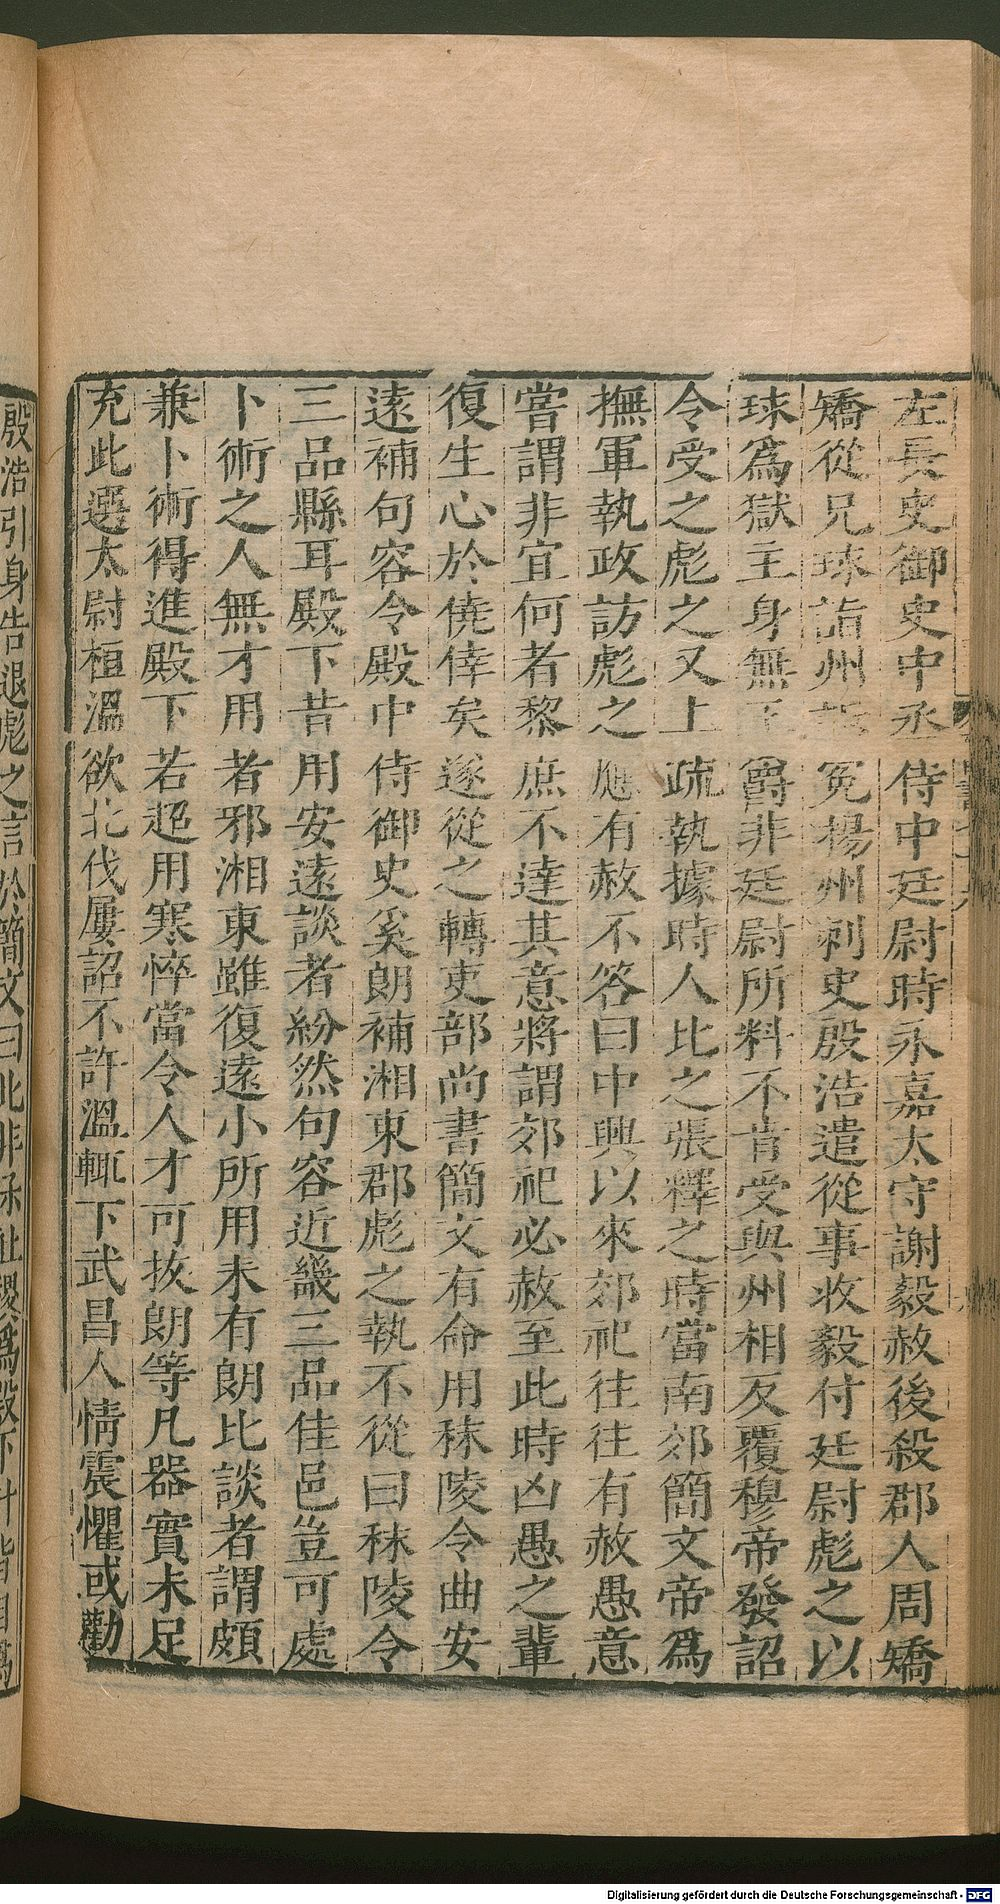 左長史御史中丞侍中廷尉時永嘉太守謝毅赦後殺郡人周矯
矯從兄球詣州訴冤楊州刺史殷浩遣從事收毅付廷尉彪之以
球爲獄主身無王爵非廷尉所料不肯受與州相反覆穆帝發詔
令受之彪之又上疏執據時人比之張釋之時當南郊簡文帝爲
撫軍執政訪彪之應有赦不答曰中興以來郊祀往往有赦愚意
嘗謂非宜何者黎庶不達其意將謂郊祀必赦至此時凶愚之輩
復生心於僥倖矣遂從之轉吏部尚書簡文有命用秣陵令曲安
遠補句容令殿中侍御史奚朗補湘東郡彪之執不從曰秣陵令
三品縣耳殿下昔用安遠談者紛然句容近畿三品佳邑豈可處
卜術之人無才用者邪湘東雖復遠小所用未有朗比談者謂頗
兼卜術得進殿下若超用寒悴當令人才可拔朗等凡器實未足
充此選太尉桓溫欲北伐屢詔不許溫輒下武昌人情震懼或勸
殷浩引身告退彪之言於簡文曰此非保社稷爲殿下計皆自爲
Digitalisierung gefördert durch die Deutsche Forschungsgemeinschaft - DFG